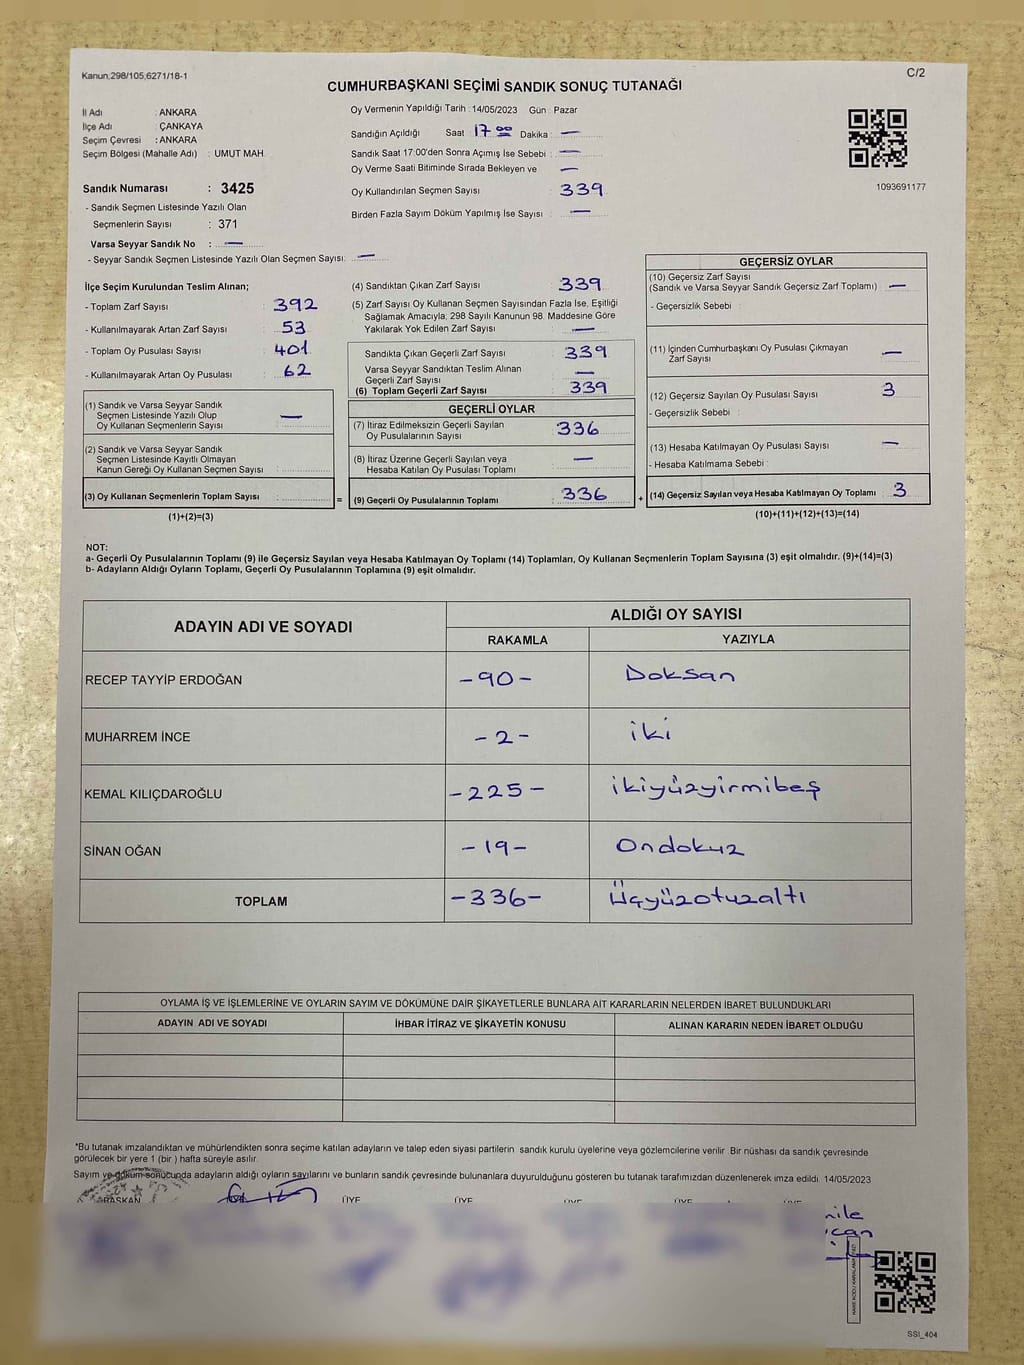 Kanun;298/105;6271/18-1
C/2
CUMHURBAŞKANI SEÇİMİ SANDIK SONUÇ TUTANAĞI
İl Adı : ANKARA
İlçe Adı : ÇANKAYA
Seçim Çevresi : ANKARA
Seçim Bölgesi (Mahalle Adı) : UMUT MAH.
Sandık Numarası : 3425
- Sandık Seçmen Listesinde Yazılı Olan
Seçmenlerin Sayısı : 371
Varsa Seyyar Sandık No : —
- Seyyar Sandık Seçmen Listesinde Yazılı Olan Seçmen Sayısı: —
Oy Vermenin Yapıldığı Tarih :14/05/2023 Gün : Pazar
Sandığın Açıldığı Saat 17 00 Dakika : —
Sandık Saat 17:00'den Sonra Açımış İse Sebebi : —
Oy Verme Saati Bitiminde Sırada Bekleyen ve —
Oy Kullandırılan Seçmen Sayısı 339
Birden Fazla Sayım Döküm Yapılmış İse Sayısı : —
1093691177
İlçe Seçim Kurulundan Teslim Alınan;
- Toplam Zarf Sayısı : 392
- Kullanılmayarak Artan Zarf Sayısı : 53
- Toplam Oy Pusulası Sayısı : 401
- Kullanılmayarak Artan Oy Pusulası : 62
(1) Sandık ve Varsa Seyyar Sandık
Seçmen Listesinde Yazılı Olup
Oy Kullanan Seçmenlerin Sayısı : —
(2) Sandık ve Varsa Seyyar Sandık
Seçmen Listesinde Kayıtlı Olmayan
Kanun Gereği Oy Kullanan Seçmen Sayısı :
(3) Oy Kullanan Seçmenlerin Toplam Sayısı : =
(1)+(2)=(3)
(4) Sandıktan Çıkan Zarf Sayısı : 339
(5) Zarf Sayısı Oy Kullanan Seçmen Sayısından Fazla İse, Eşitliği
Sağlamak Amacıyla; 298 Sayılı Kanunun 98. Maddesine Göre
Yakılarak Yok Edilen Zarf Sayısı : —
Sandıkta Çıkan Geçerli Zarf Sayısı : 339
Varsa Seyyar Sandıktan Teslim Alınan
Geçerli Zarf Sayısı : —
(6) Toplam Geçerli Zarf Sayısı : 339
GEÇERLİ OYLAR
(7) İtiraz Edilmeksizin Geçerli Sayılan
Oy Pusulalarının Sayısı : 336
(8) İtiraz Üzerine Geçerli Sayılan veya
Hesaba Katılan Oy Pusulası Toplamı : —
(9) Geçerli Oy Pusulalarının Toplamı : 336 +
GEÇERSİZ OYLAR
(10) Geçersiz Zarf Sayısı
(Sandık ve Varsa Seyyar Sandık Geçersiz Zarf Toplamı) : —
- Geçersizlik Sebebi :
(11) İçinden Cumhurbaşkanı Oy Pusulası Çıkmayan
Zarf Sayısı : —
(12) Geçersiz Sayılan Oy Pusulası Sayısı : 3
- Geçersizlik Sebebi :
(13) Hesaba Katılmayan Oy Pusulası Sayısı : —
- Hesaba Katılmama Sebebi :
(14) Geçersiz Sayılan veya Hesaba Katılmayan Oy Toplamı : 3
(10)+(11)+(12)+(13)=(14)
NOT:
a- Geçerli Oy Pusulalarının Toplamı (9) ile Geçersiz Sayılan veya Hesaba Katılmayan Oy Toplamı (14) Toplamları, Oy Kullanan Seçmenlerin Toplam Sayısına (3) eşit olmalıdır. (9)+(14)=(3)
b- Adayların Aldığı Oyların Toplamı, Geçerli Oy Pusulalarının Toplamına (9) eşit olmalıdır.
ADAYIN ADI VE SOYADI
ALDIĞI OY SAYISI
RAKAMLA YAZIYLA
RECEP TAYYİP ERDOĞAN -90- Doksan
MUHARREM İNCE -2- iki
KEMAL KILIÇDAROĞLU -225- ikiyüzyirmibeş
SİNAN OĞAN -19- Ondokuz
TOPLAM -336- Üçyüzotuzaltı
OYLAMA İŞ VE İŞLEMLERİNE VE OYLARIN SAYIM VE DÖKÜMÜNE DAİR ŞİKAYETLERLE BUNLARA AİT KARARLARIN NELERDEN İBARET BULUNDUKLARI
ADAYIN ADI VE SOYADI İHBAR İTİRAZ VE ŞİKAYETİN KONUSU ALINAN KARARIN NEDEN İBARET OLDUĞU
*Bu tutanak imzalandıktan ve mühürlendikten sonra seçime katılan adayların ve talep eden siyasi partilerin sandık kurulu üyelerine veya gözlemcilerine verilir. Bir nüshası da sandık çevresinde
görülecek bir yere 1 (bir ) hafta süreyle asılır.
Sayım ve döküm sonucunda adayların aldığı oyların sayılarını ve bunların sandık çevresinde bulunanlara duyurulduğunu gösteren bu tutanak tarafımızdan düzenlenerek imza edildi. 14/05/2023
BAŞKAN ÜYE ÜYE ÜYE ÜYE ÜYE
SSI_404